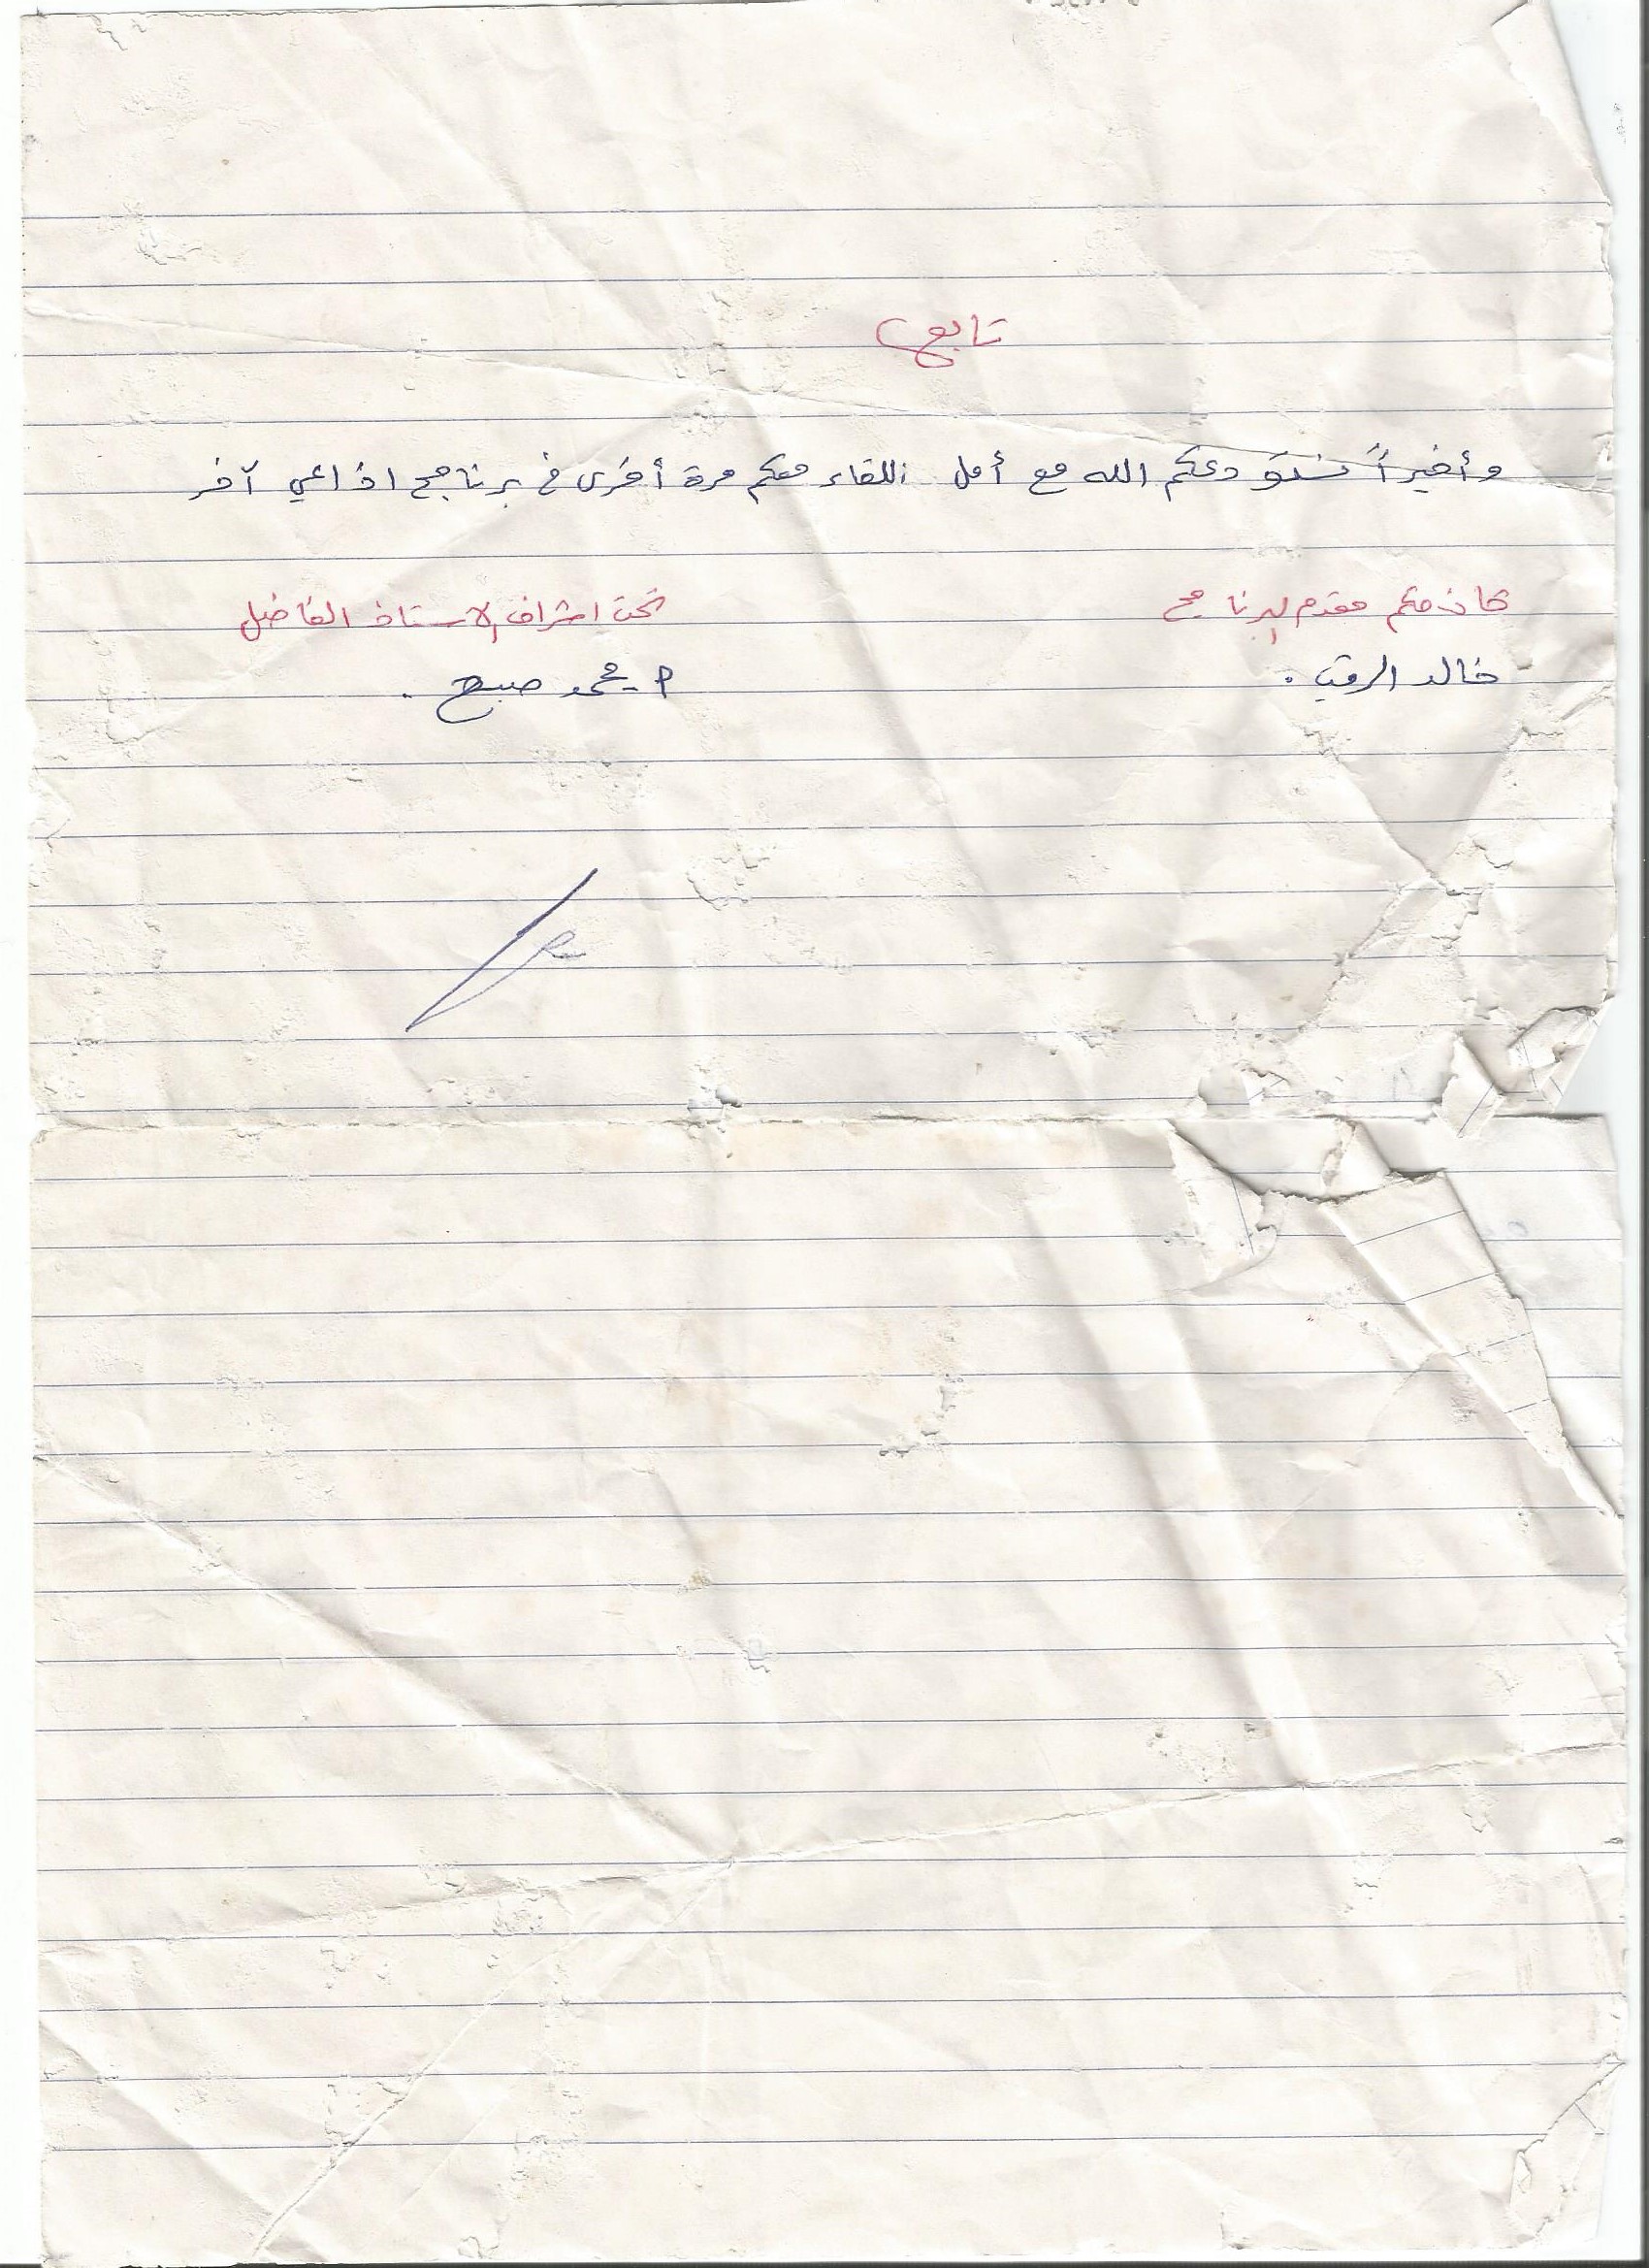 تابع
وأخيراً نستودعكم الله مع أمل اللقاء معكم مرة أخرى في برنامج اذاعي آخر
كان معكم مقدم البرنامج
تحت اشراف الاستاذ الفاضل
خالد الرقب .
أ. محمد صبح .